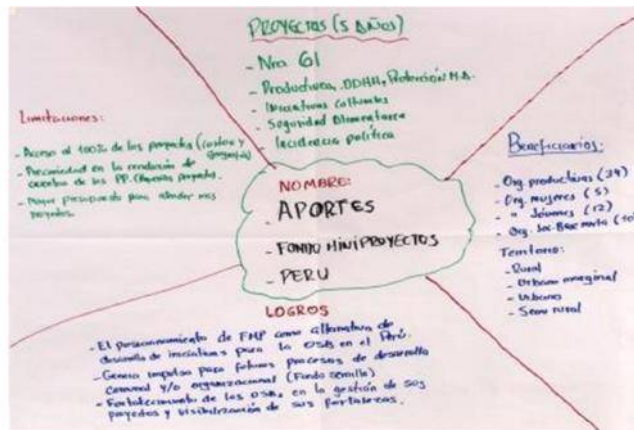 PROYECTOS (5 AÑOS)
- Nro 61
- Productivos, DDHH, Protección M.A.
- Iniciativas culturales
- Seguridad Alimentaria
- Incidencia política
Limitaciones:
- Acceso al 100% de los proyectos (costos y
- Precariedad en la rendición de
cuentas de los PP. (Pequeños proyectos)
- Mayor presupuesto para atender mas
proyectos.
NOMBRE:
- APORTES
- FONDO MINIPROYECTOS
- PERU
Beneficiarios:
- Org. productivas (34)
- Org. mujeres (5)
- " Jóvenes (12)
- Org. Soc. Base mixta
Territorio:
- Rural
- Urbano marginal
- Urbano
- Semi rural
LOGROS
- El posicionamiento de FMP como alternativa de
desarrollo de iniciativas para la OSB en el Perú.
- Genera impulso para futuros procesos de desarrollo
comunal y/o organizacional (Fondo semilla)
- Fortalecimiento de las OSBs en la gestión de sus
proyectos y visibilización de sus fortalezas.